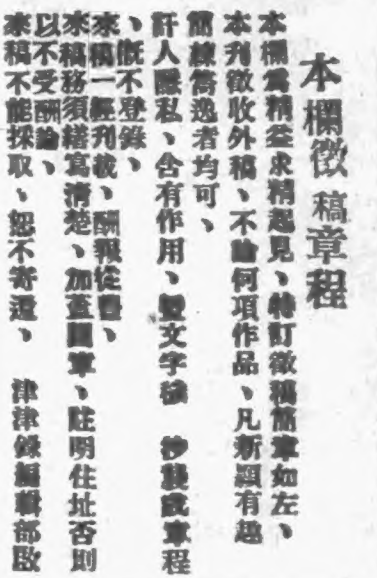 本欄徵稿章程
本欄爲精益求精起見、特訂徵稿簡章如左、
本刊徵收外稿、不論何項作品、凡新穎有趣
簡練雋逸者均可、
訐人隱私、含有作用、文字 抄襲 章程
、概不登錄、
來稿一經刊載、酬報從豐、
來稿務須繕寫清楚、加蓋圖章、註明住址否則
以不受酬論、
來稿不能採取、恕不寄還、 津津錄編輯部啟